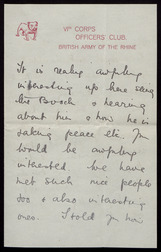 VIth CORPS
OFFICERS' CLUB.
BRITISH ARMY OF THE RHINE
It is really awfully
interesting up here seeing
the & hearing
about him & how he is
taking peace etc. You
would be awfully
interested. We have
met such nice people
too & also interesting
ones. I told you how